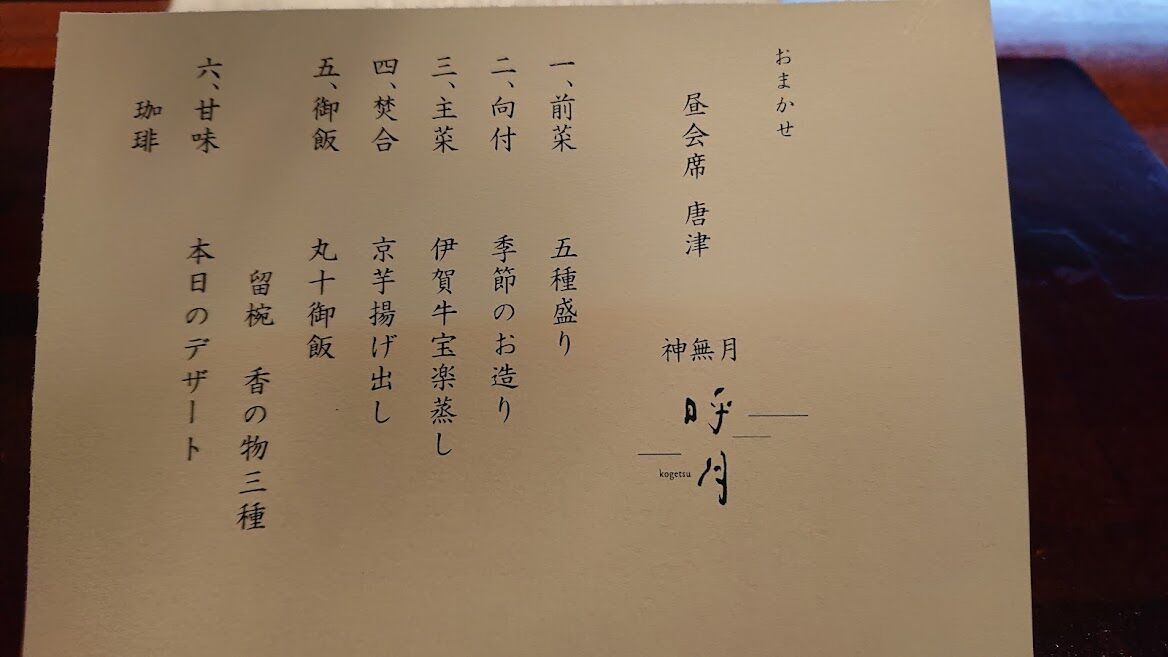 おまかせ
昼会席 唐津
神無月
呼月
kogetsu
一、前菜 五種盛り
二、向付 季節のお造り
三、主菜 伊賀牛宝楽蒸し
四、焚合 京芋揚げ出し
五、御飯 丸十御飯
留椀 香の物三種
六、甘味 本日のデザート
珈琲